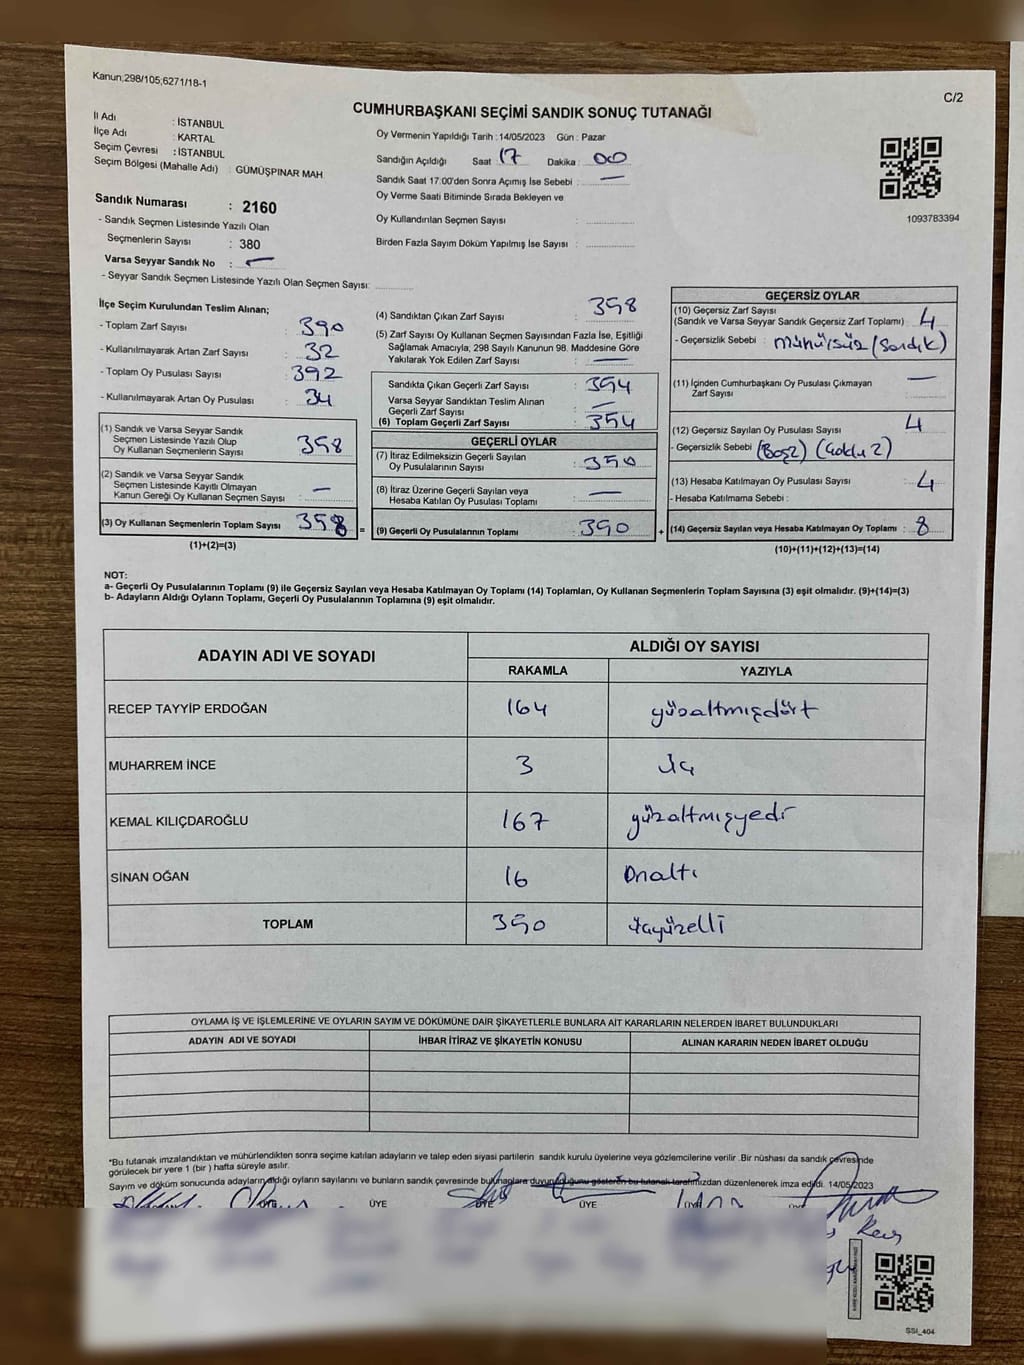 Kanun;298/105;6271/18-1
C/2
CUMHURBAŞKANI SEÇİMİ SANDIK SONUÇ TUTANAĞI
İl Adı : İSTANBUL
İlçe Adı : KARTAL
Seçim Çevresi : İSTANBUL
Seçim Bölgesi (Mahalle Adı) : GÜMÜŞPINAR MAH.
Sandık Numarası : 2160
- Sandık Seçmen Listesinde Yazılı Olan
Seçmenlerin Sayısı : 380
Varsa Seyyar Sandık No : —
- Seyyar Sandık Seçmen Listesinde Yazılı Olan Seçmen Sayısı:
Oy Vermenin Yapıldığı Tarih : 14/05/2023 Gün : Pazar
Sandığın Açıldığı Saat : 17 Dakika : 00
Sandık Saat 17.00'den Sonra Açımış İse Sebebi : —
Oy Verme Saati Bitiminde Sırada Bekleyen ve
Oy Kullandırılan Seçmen Sayısı :
Birden Fazla Sayım Döküm Yapılmış İse Sayısı :
1093783394
İlçe Seçim Kurulundan Teslim Alınan;
- Toplam Zarf Sayısı : 390
- Kullanılmayarak Artan Zarf Sayısı : 32
- Toplam Oy Pusulası Sayısı : 392
- Kullanılmayarak Artan Oy Pusulası : 34
(1) Sandık ve Varsa Seyyar Sandık
Seçmen Listesinde Yazılı Olup
Oy Kullanan Seçmenlerin Sayısı : 358
(2) Sandık ve Varsa Seyyar Sandık
Seçmen Listesinde Kayıtlı Olmayan
Kanun Gereği Oy Kullanan Seçmen Sayısı : —
(3) Oy Kullanan Seçmenlerin Toplam Sayısı : 358 =
(1)+(2)=(3)
(4) Sandıktan Çıkan Zarf Sayısı : 358
(5) Zarf Sayısı Oy Kullanan Seçmen Sayısından Fazla İse, Eşitliği
Sağlamak Amacıyla, 298 Sayılı Kanunun 98. Maddesine Göre
Yakılarak Yok Edilen Zarf Sayısı : —
Sandıkta Çıkan Geçerli Zarf Sayısı : 354
Varsa Seyyar Sandıktan Teslim Alınan
Geçerli Zarf Sayısı : —
(6) Toplam Geçerli Zarf Sayısı : 354
GEÇERLİ OYLAR
(7) İtiraz Edilmeksizin Geçerli Sayılan
Oy Pusulalarının Sayısı : 350
(8) İtiraz Üzerine Geçerli Sayılan veya
Hesaba Katılan Oy Pusulası Toplamı : —
(9) Geçerli Oy Pusulalarının Toplamı : 350 +
GEÇERSİZ OYLAR
(10) Geçersiz Zarf Sayısı
(Sandık ve Varsa Seyyar Sandık Geçersiz Zarf Toplamı) : 4
- Geçersizlik Sebebi : mühürsüz (Sandık)
(11) İçinden Cumhurbaşkanı Oy Pusulası Çıkmayan
Zarf Sayısı : —
(12) Geçersiz Sayılan Oy Pusulası Sayısı : 4
- Geçersizlik Sebebi : (Boş2) (Çoklu 2)
(13) Hesaba Katılmayan Oy Pusulası Sayısı : 4
- Hesaba Katılmama Sebebi :
(14) Geçersiz Sayılan veya Hesaba Katılmayan Oy Toplamı : 8
(10)+(11)+(12)+(13)=(14)
NOT:
a- Geçerli Oy Pusulalarının Toplamı (9) ile Geçersiz Sayılan veya Hesaba Katılmayan Oy Toplamı (14) Toplamları, Oy Kullanan Seçmenlerin Toplam Sayısına (3) eşit olmalıdır. (9)+(14)=(3)
b- Adayların Aldığı Oyların Toplamı, Geçerli Oy Pusulalarının Toplamına (9) eşit olmalıdır.
ADAYIN ADI VE SOYADI
ALDIĞI OY SAYISI
RAKAMLA YAZIYLA
RECEP TAYYİP ERDOĞAN 164 yüzaltmışdört
MUHARREM İNCE 3 üç
KEMAL KILIÇDAROĞLU 167 yüzaltmışyedi
SİNAN OĞAN 16 Onaltı
TOPLAM 350 üçyüzelli
OYLAMA İŞ VE İŞLEMLERİNE VE OYLARIN SAYIM VE DÖKÜMÜNE DAİR ŞİKAYETLERLE BUNLARA AİT KARARLARIN NELERDEN İBARET BULUNDUKLARI
ADAYIN ADI VE SOYADI İHBAR İTİRAZ VE ŞİKAYETİN KONUSU ALINAN KARARIN NEDEN İBARET OLDUĞU
*Bu tutanak imzalandıktan ve mühürlendikten sonra seçime katılan adayların ve talep eden siyasi partilerin sandık kurulu üyelerine veya gözlemcilerine verilir .Bir nüshası da sandık çevresinde
görülecek bir yere 1 (bir ) hafta süreyle asılır.
Sayım ve döküm sonucunda adayların aldığı oyların sayılarını ve bunların sandık çevresinde bulunanlara duyurulduğunu gösteren bu tutanak tarafımızdan düzenlenerek imza edildi. 14/05/2023
ÜYE ÜYE ÜYE ÜYE
SSI_404